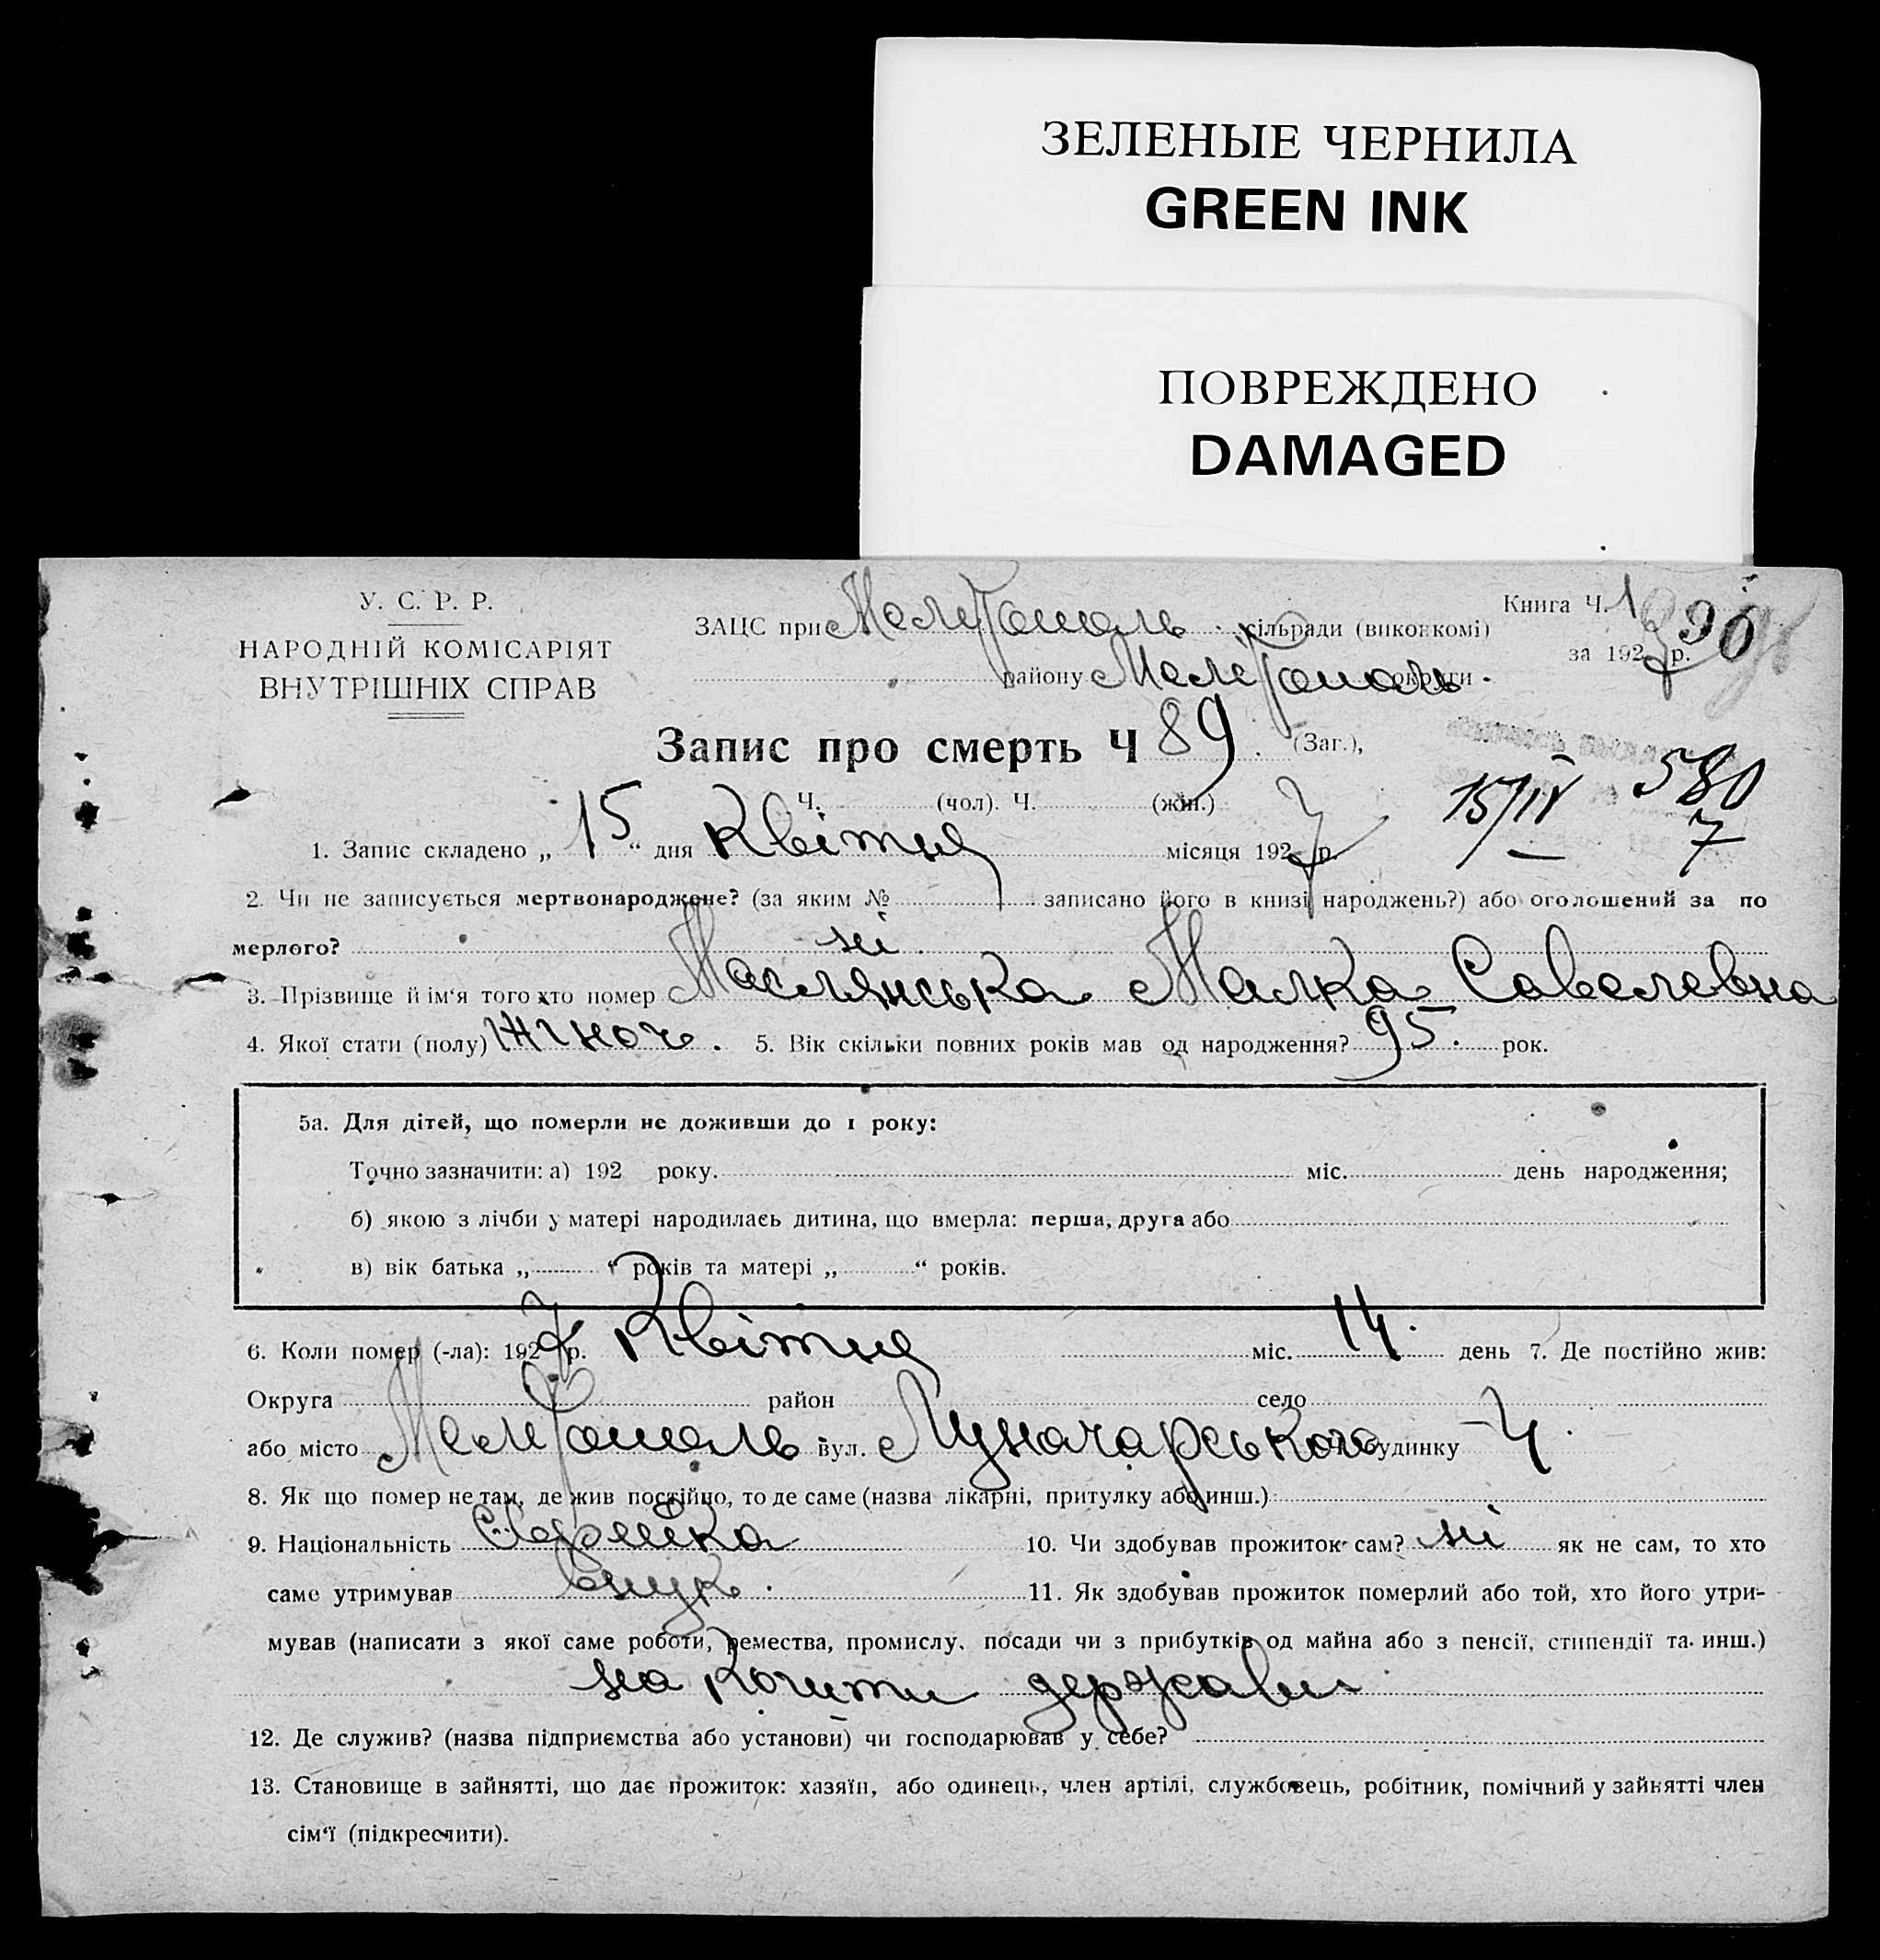 ЗЕЛЕНЫЕ ЧЕРНИЛА
GREEN INK
ПОВРЕЖДЕНО
DAMAGED
У. С. Р. Р.
НАРОДНІЙ КОМІСАРІЯТ
ВНУТРІШНІХ СПРАВ
Книга Ч. 1
90
ЗАЦС при Мелітополь сільради (виконкомі)
за 1927 р.
району Мелітополь округи
Запис про смерть Ч 89. (Заг.),
Ч. (чол). Ч. (жін.)
15/IV 580
7
1. Запис складено „15“ дня Квітня місяця 1927 р.
2. Чи не записується мертвонароджене? (за яким № записано його в книзі народжень?) або оголошений за по
мерлого? ні.
3. Прізвище й ім‘я того хто помер Маслянська Малка Савелевна
4. Якої стати (полу) жіноч. 5. Вік скільки повних років мав од народження? 95. рок.
5а. Для дітей, що померли не доживши до 1 року:
Точно зазначити: а) 192 року. міс. день народження;
б) якою з лічби у матері народилаєь дитина, що вмерла: перша, друга або
в) вік батька „ “ років та матері „ “ років.
6. Коли помер (-ла): 1927 р. Квітня міс. 14. день 7. Де постійно жив:
Округа район село
або місто Мелітополь вул. Луначарського будинку 4.
8. Як що помер не там, де жив постійно, то де саме (назва лікарні, притулку або инш.)
9. Національність Єврейка 10. Чи здобував прожиток сам? ні як не сам, то хто
саме утримував внук. 11. Як здобував прожиток померлий або той, хто його утри-
мував (написати з якої саме роботи, ремества, промислу, посади чи з прибутків од майна або з пенсії, стипендії та инш.)
на кошти держави
12. Де служив? (назва підприємства або установи) чи господарював у себе?
13. Становище в зайнятті, що дає прожиток: хазяїн, або одинець, член артілі, службовець, робітник, помічний у зайнятті член
сім‘ї (підкреслити).